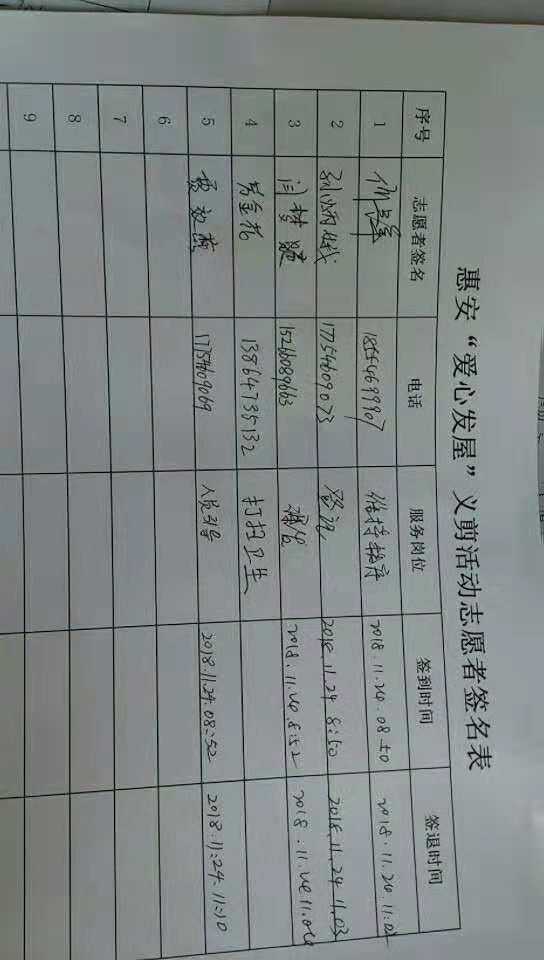 惠安“爱心发屋”义剪活动志愿者签名表
序号 志愿者签名 电话 服务岗位 签到时间 签退时间
1 18554699907 维持秩序 2018.11.24.08:50 2018.11.24.11:02
2 17754609073 登记 2018.11.24 8:50 2018.11.24 11:03
3 闫梦 15266089663 2018.11.24.8:52 2018.11.24 11.06
4 金花 13864735132 打扫卫生
5 17754609069 人员引导 2018.11.24.08:52 2018.11:24.11:10
6
7
8
9